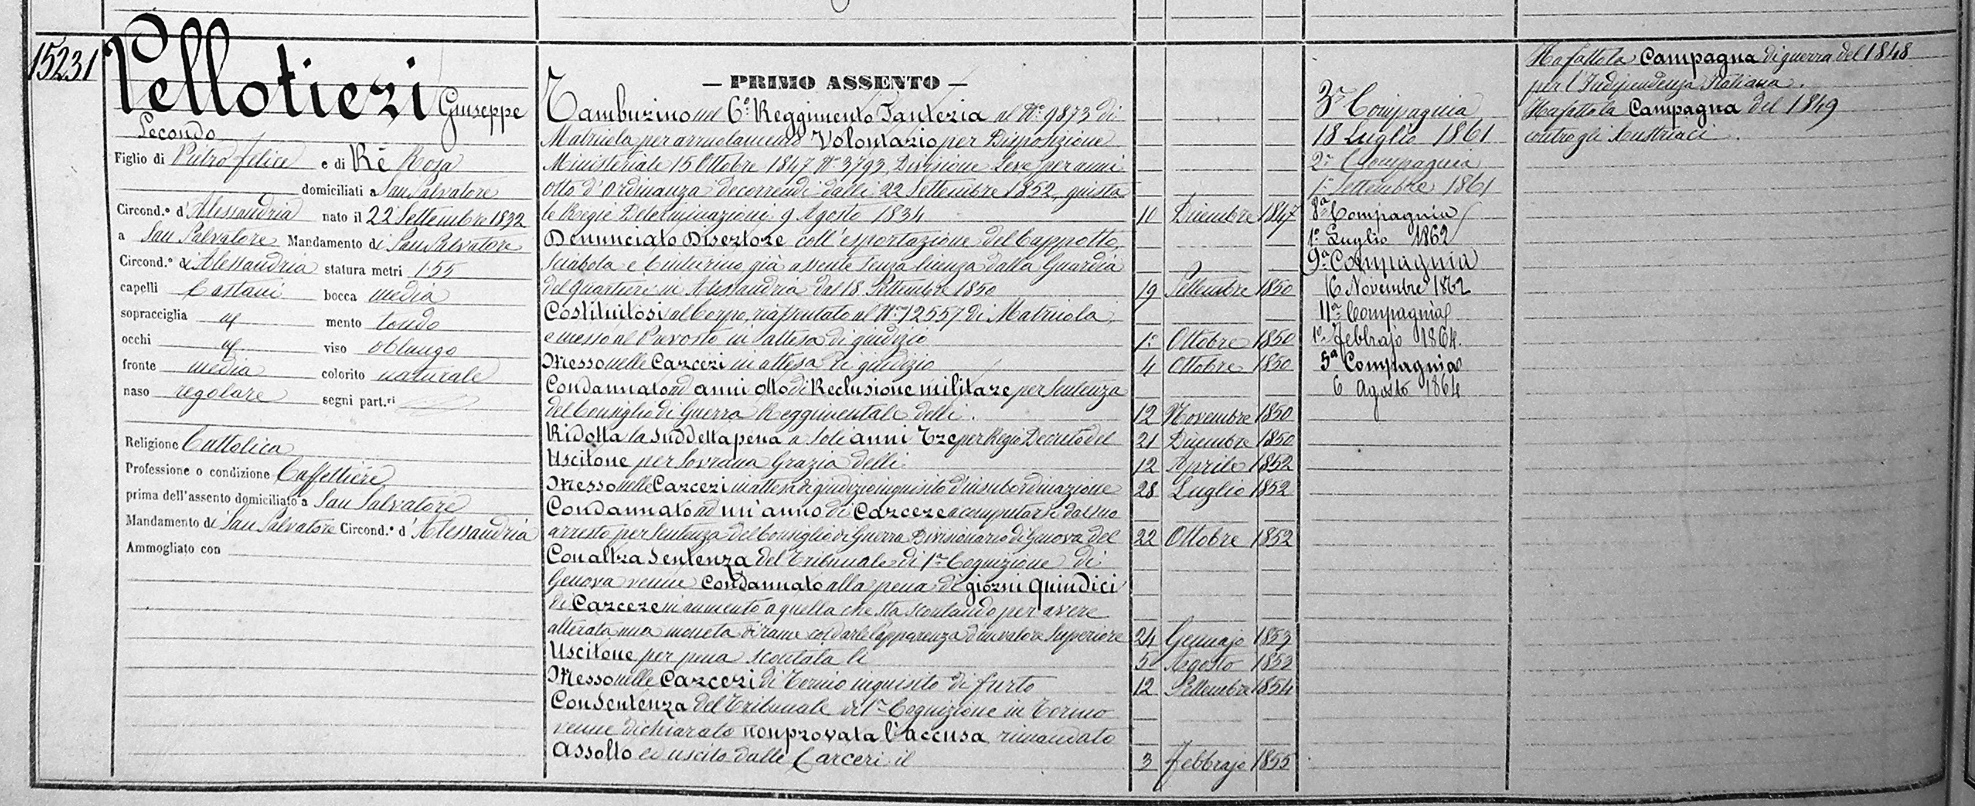 15231
Pellotieri Giuseppe
Secondo
Figlio di Pietro Felice e di Rè Rosa
domiciliati a San Salvatore
Circond.° d'Alessandria nato il 22 Settembre 1832
a San Salvatore Mandamento di San Salvatore
Circond.° d'Alessandria statura metri 1.55
capelli Castani bocca media
sopracciglia mento tondo
occhi viso oblungo
fronte media colorito naturale
naso regolare segni part.ri
Religione Cattolica
Professione o condizione Caffettiere
prima dell'assento domiciliato a San Salvatore
Mandamento di San Salvatore Circond.° d'Alessandria
Ammogliato con
— PRIMO ASSENTO —
Tamburino nel 6° Reggimento Fanteria al N° 9873 di
Matricola per arruolamento Volontario per Disposizione
Ministeriale 15 Ottobre 1847 N° 3793, Divisione Leve per anni
otto d'Ordinanza decorrendi dalli 22 Settembre 1852, giusta
le Regie Determinazioni 9 Agosto 1834 11 Dicembre 1847
Denunciato Disertore coll'esportazione del Cappotto,
Sciabola e Cinturino già assente senza licenza dalla Guardia
del quartiere in Alessandria dal 18 Settembre 1850 19 Settembre 1850
Costituitosi al Corpo, riafruttato al N° 12557 di Matricola,
e messo al Prevosto in attesa di giudizio 1° Ottobre 1850
Messo nelle Carceri in attesa di giudizio 4 Ottobre 1850
Condannato ad anni otto di Reclusione militare per Sentenza
del Consiglio di Guerra Reggimentale delli 12 Novembre 1850
Ridotta la suddetta pena a soli anni Tre per Regio Decreto del 21 Dicembre 1850
Uscitone per Sovrana Grazia delli 12 Aprile 1852
Messo nelle Carceri in attesa di giudizio inquisito d'insubordinazione 28 Luglio 1852
Condannato ad un'anno di Carcere a computarsi dal suo
arresto per sentenza del Consiglio di Guerra Divisionario di Genova del 22 Ottobre 1852
Con altra Sentenza del Tribunale di 1ª Cognizione di
Genova venne Condannato alla pena di giorni quindici
di Carcere in aumento a quella che sta scontando per avere
alterata una moneta di rame col darle l'apparenza d'un valore Superiore 24 Gennajo 1853
Uscitone per pena scontata li 5 Agosto 1853
Messo nelle Carceri di Torino inquisito di furto 12 Settembre 1854
Con Sentenza del Tribunale di 1ª Cognizione in Torino
venne dichiarato non provata l'accusa, rimandato
Assolto ed uscito dalle Carceri il 3 Febbrajo 1855
3ª Compagnia
18 Luglio 1861
2ª Compagnia
1° Settembre 1861
8ª Compagnia
1° Luglio 1862
9ª Compagnia
16 Novembre 1862
11ª Compagnia
1° Febbrajo 1864.
5ª Compagnia
6 Agosto 1864
Ha fatto la Campagna di guerra del 1848
per l'Indipendenza Italiana.
Ha fatto la Campagna del 1849
contro gli Austriaci.